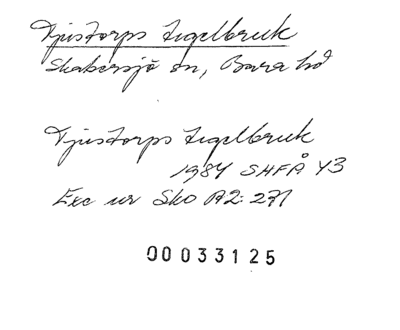 Tjustorps tegelbruk
Skabersjö sn, Bara hd
Tjustorps tegelbruk
1984 SHFÅ Y3
Exc ur Sko A2:271
00033125